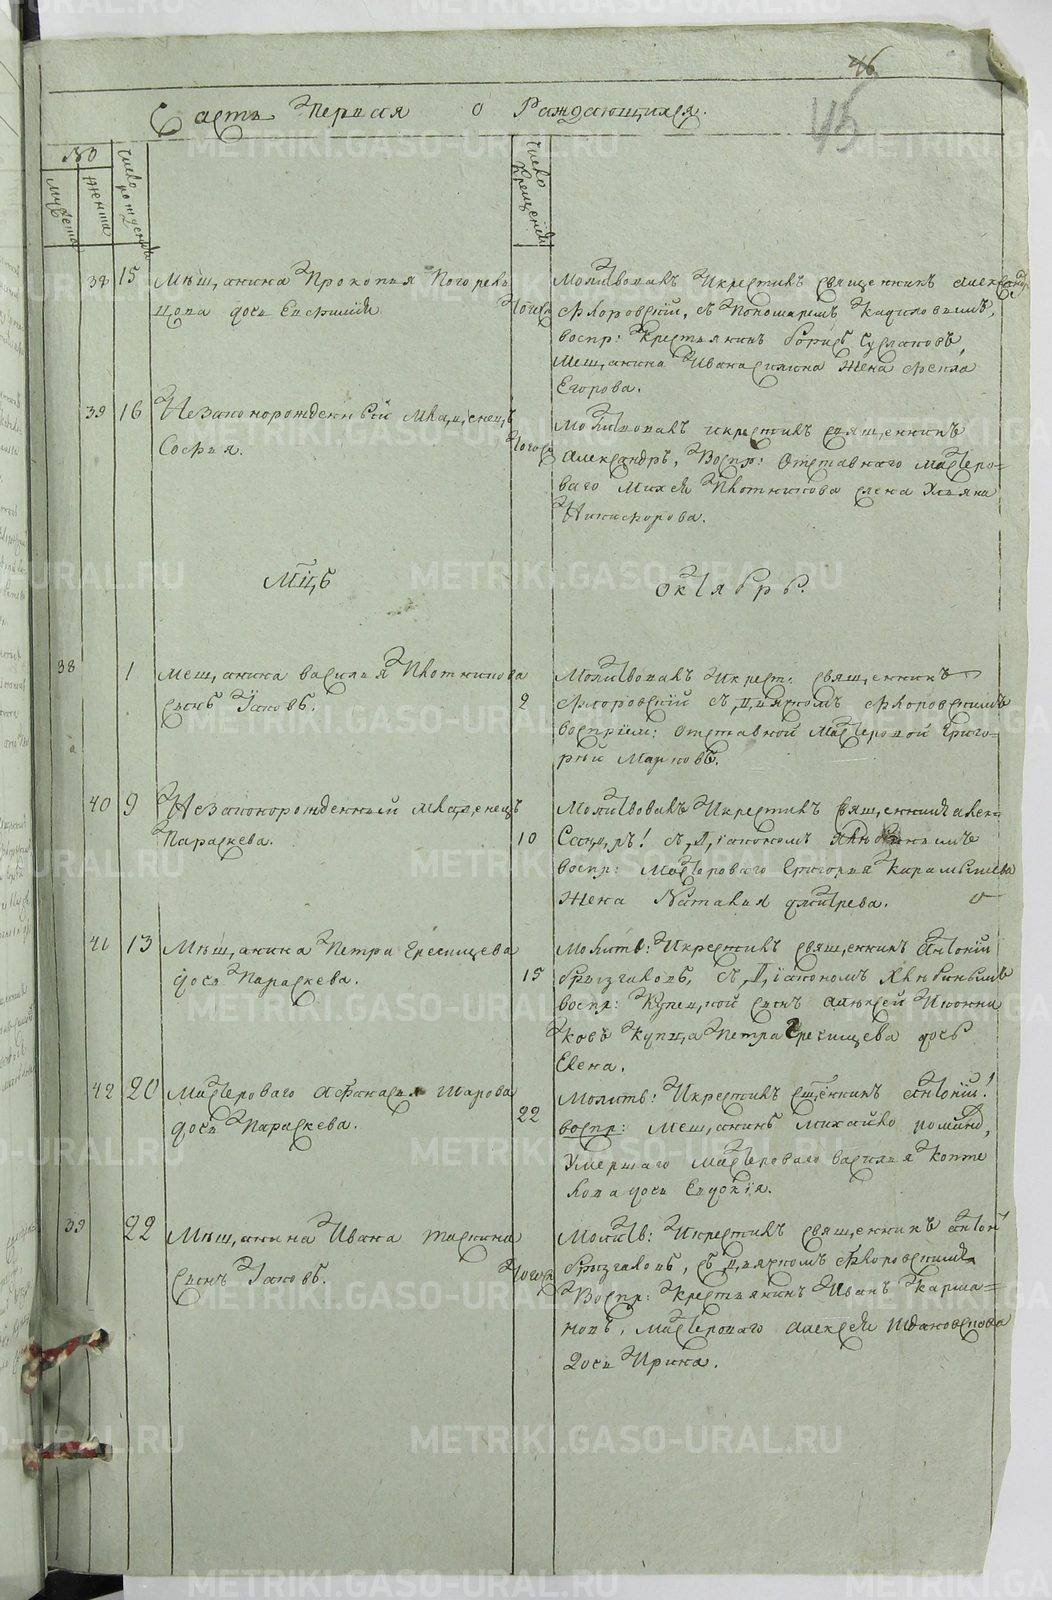 46
45
Часть Первая о Раждающихся.
№
мужеска
женска
число рожденія
число крещенія
38 15 Мѣщанина Прокопья
цова дочь Евфимия
Молитвовалъ Икрестилъ священникъ Александръ
Флоровскій, съ Пономаремъ
воспр: Крестьянинъ Борисъ
Мещанина Ивана жена Фекла
Егорова.
39 16 Незаконорожденный младенецъ
Софья.
тогоже
Молитвовалъ икрестилъ священникъ
Александръ, Воспр: Отставнаго мастеро=
ваго Михея Плотникова жена Ульяна
Никифорова.
Мцъ Октябрь.
38 1 мещанина василья Плотникова
сынъ Іаковъ.
2
Молитвовалъ Икрест: священникъ
Флоровскій съ Діякномъ Флоровскимъ
воспріем: отставной Мастеровой Григо=
рый Марковъ.
40 9 Незаконорожденный младенецъ
Параскева.
10
Молитвовалъ Икрестилъ Священникъ Алек=
сандръ! съ Діакономъ
воспр: Мастероваго Григорья Карамышева
жена Наталья Дмитрева.
41 13 Мѣщанина Петра Ересищева
дочь Параскева.
15
Молитв: Икрестилъ священникъ Антоній
Брызгаловъ, съ Діакономъ
воспр: Купецкой сынъ Алексей Иконни
ковъ Купца Петра дочь
Елена.
42 20 Мастероваго Афанасья Шарова
дочь Параскева.
22
Молитв: Икрестилъ сщенникъ Антоній!
воспр: Мещанинъ Михайло
Умершаго мастероваго василья Копте
лова дочь Евдокія.
39 22 Мѣщанина Ивана Таскина
сынъ Іаковъ.
тогоже
Молитв: Икрестилъ священникъ Антоній
Брызгаловъ, съ Діякномъ Флоровскимъ
Воспр: Крестьянинъ Иванъ Карма=
новъ, Мастероваго Алексея Ждановскова
Дочь Ирина.
METRIKI.GASO-URAL.RU